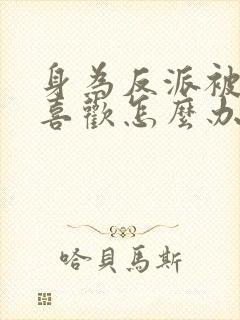 身為反派被
喜歡怎麼办
哈貝馬斯